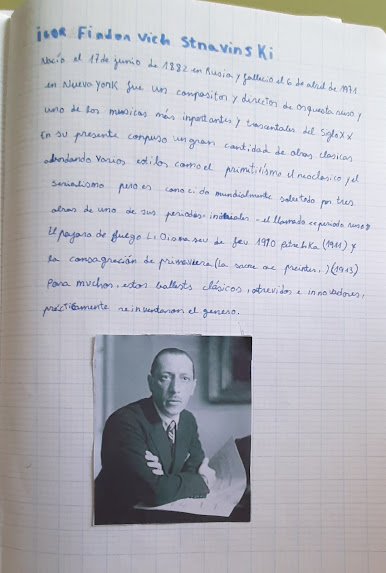 igor Fiodor Vich Stravinski
Nació el 17 de junio de 1882 en Rusia y falleció el 6 de abril de 1971
en Nueva York fue un compositor y director de orquesta ruso y
uno de los musicos más inportantes y trascentales del Siglo XX
En su presente compuso un gran cantidad de obras clasicas
abordando varios estilos como el primitilismo el neoclasico y el
serialismo pero es conocido mundialmente sobretodo por tres
obras de uno de sus periodos iniciales - el llamado es periodo ruso
El pajaro de fuego L, Oiseau de feu 1910 petrushka (1911) y
la consagración de primavera (la sacre de printen,) (1913)
Para muchos, estos ballets clásicos, atrevidos e innovadores,
prácticamente reinventaron el genero.